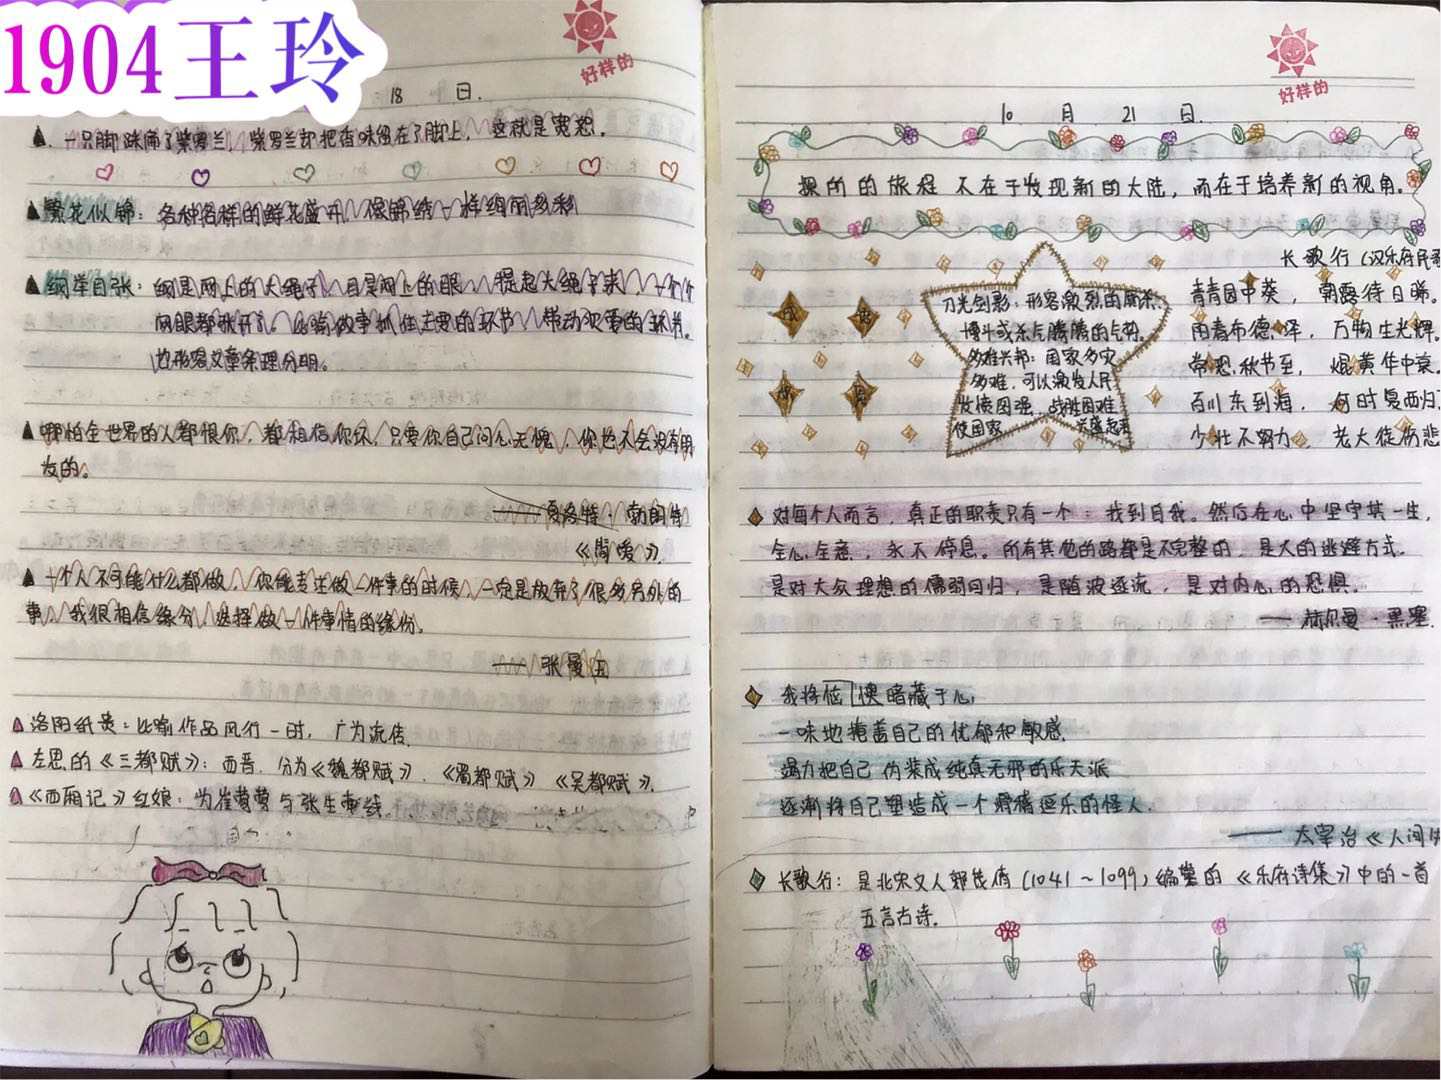 1904王玲
好样的
18 日.
▲. 一只脚踩痛了紫罗兰, 紫罗兰却把香味留在了脚上, 这就是宽恕.
▲繁花似锦: 各种各样的鲜花盛开, 像锦绣一样绚丽多彩
▲纲举目张: 纲是网上的大绳子, 目是网上的眼, 提起大绳子来, 一个个
网眼都张开了。比喻做事抓住主要的环节, 带动次要的环节.
也形容文章条理分明。
▲哪怕全世界的人都恨你, 都相信你坏, 只要你自己问心无愧, 你也不会没有朋
友的。
——夏洛特·勃朗特
《简爱》.
▲一个人不可能什么都做, 你能专注做一件事的时候, 一定是放弃了很多另外的
事. 我很相信缘分, 选择做一件事情的缘份.
——张曼玉
▲洛阳纸贵: 比喻作品风行一时, 广为流传.
▲左思的《三都赋》: 西晋. 分为《魏都赋》. 《蜀都赋》《吴都赋》.
▲《西厢记》红娘: 为崔莺莺与张生牵线.
好样的
10 月 21 日.
的旅程 不在于发现新的大陆, 而在于培养新的视角.
长歌行 (汉乐府民歌
青青园中葵, 朝露待日晞。
阳春布德泽, 万物生光辉。
常恐秋节至, 焜黄华中衰。
百川东到海, 何时复西归?
少壮不努力, 老大徒伤悲
刀光剑影: 形容激烈的厮杀.
博斗或杀气腾腾的气势.
多难兴邦: 国家多灾
多难, 可以激发人民
发愤图强, 战胜困难
使国家 兴盛起来
◆对每个人而言, 真正的职责只有一个: 找到自我。然后在心中坚守其一生,
全心全意, 永不停息。所有其他的路都是不完整的, 是人的逃避方式.
是对大众理想的懦弱回归, 是随波逐流, 是对内心的恐惧。
——赫尔曼·黑塞.
◆我将 暗藏于心,
一味地掩盖自己的忧郁和敏感.
竭力把自己伪装成纯真无邪的乐天派
逐渐将自己塑造成一个滑稽逗乐的怪人.
——太宰治《人间失
◆长歌行: 是北宋文人郭茂倩 (1041~1099) 编纂的《乐府诗集》中的一首
五言古诗.